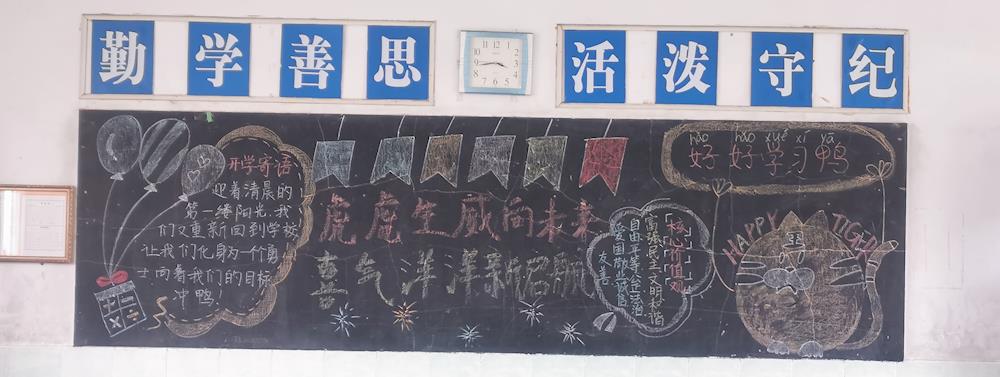 勤学善思
活泼守纪
开学寄语
迎着清晨的
第一缕阳光,我
们又重新回到学校
让我们化身为一个勇
士向着我们的目标
冲鸭!
虎虎生威向未来
喜气洋洋新启航
「核心价值观」
富强民主文明和谐
自由平等公正法治
爱国敬业诚信
友善
hǎo hǎo xué xí yā
好好学习鸭
HAPPY TIGER
王